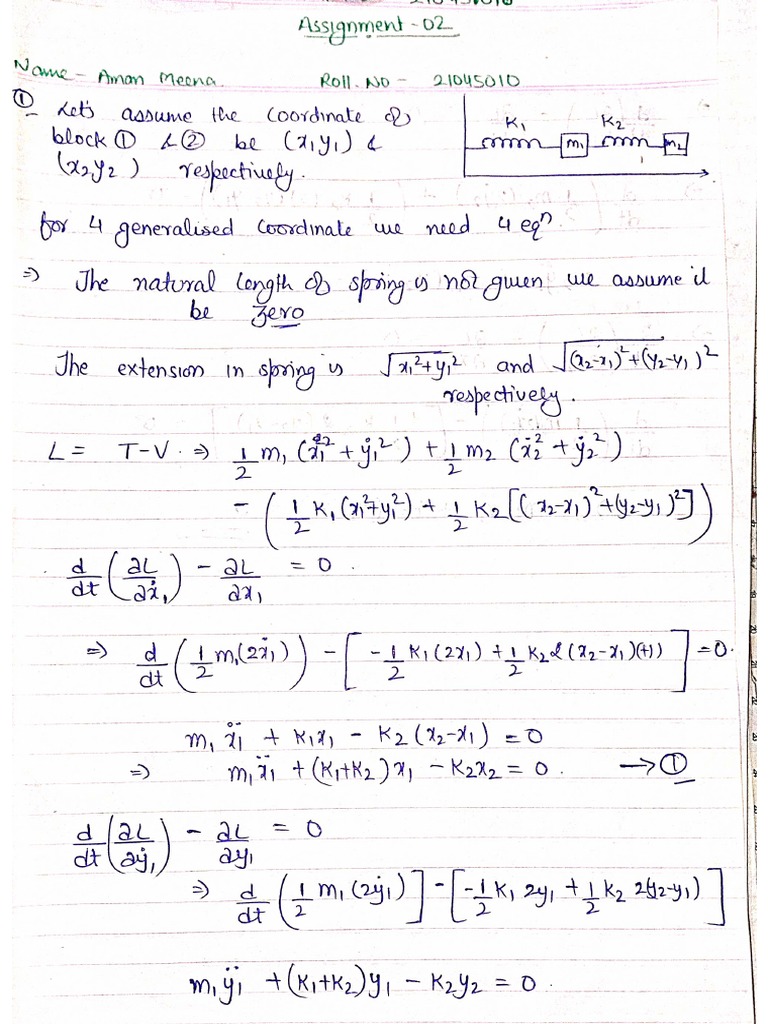 Assignment-02
Name - Aman Meena Roll. No - 21045010
① Let's assume the coordinate of
block ① & ② be (x₁y₁) &
(x₂,y₂) respectively.
K₁ K₂
m₁ m₂
for 4 generalised coordinate we need 4 eqⁿ.
⇒ The natural length of spring is not given we assume it
be zero
The extension in spring is √(x₁²+y₁²) and √((x₂-x₁)²+(y₂-y₁)²)
respectively.
L = T-V ⇒ 1/2 m₁ (ẋ₁² + ẏ₁²) + 1/2 m₂ (ẋ₂² + ẏ₂²)
- (1/2 K₁(x₁²+y₁²) + 1/2 K₂[(x₂-x₁)²+(y₂-y₁)²])
d/dt (∂L/∂ẋ₁) - ∂L/∂x₁ = 0.
⇒ d/dt (1/2 m₁(2ẋ₁)) - [-1/2 K₁(2x₁) + 1/2 K₂ 2(x₂-x₁)(+1)] = 0.
m₁ẍ₁ + K₁x₁ - K₂(x₂-x₁) = 0
⇒ m₁ẍ₁ + (K₁+K₂)x₁ - K₂x₂ = 0. → ①
d/dt (∂L/∂ẏ₁) - ∂L/∂y₁ = 0
⇒ d/dt (1/2 m₁(2ẏ₁)] - [-1/2 K₁ 2y₁ + 1/2 K₂ 2(y₂-y₁)]
m₁ÿ₁ + (K₁+K₂)y₁ - K₂y₂ = 0.